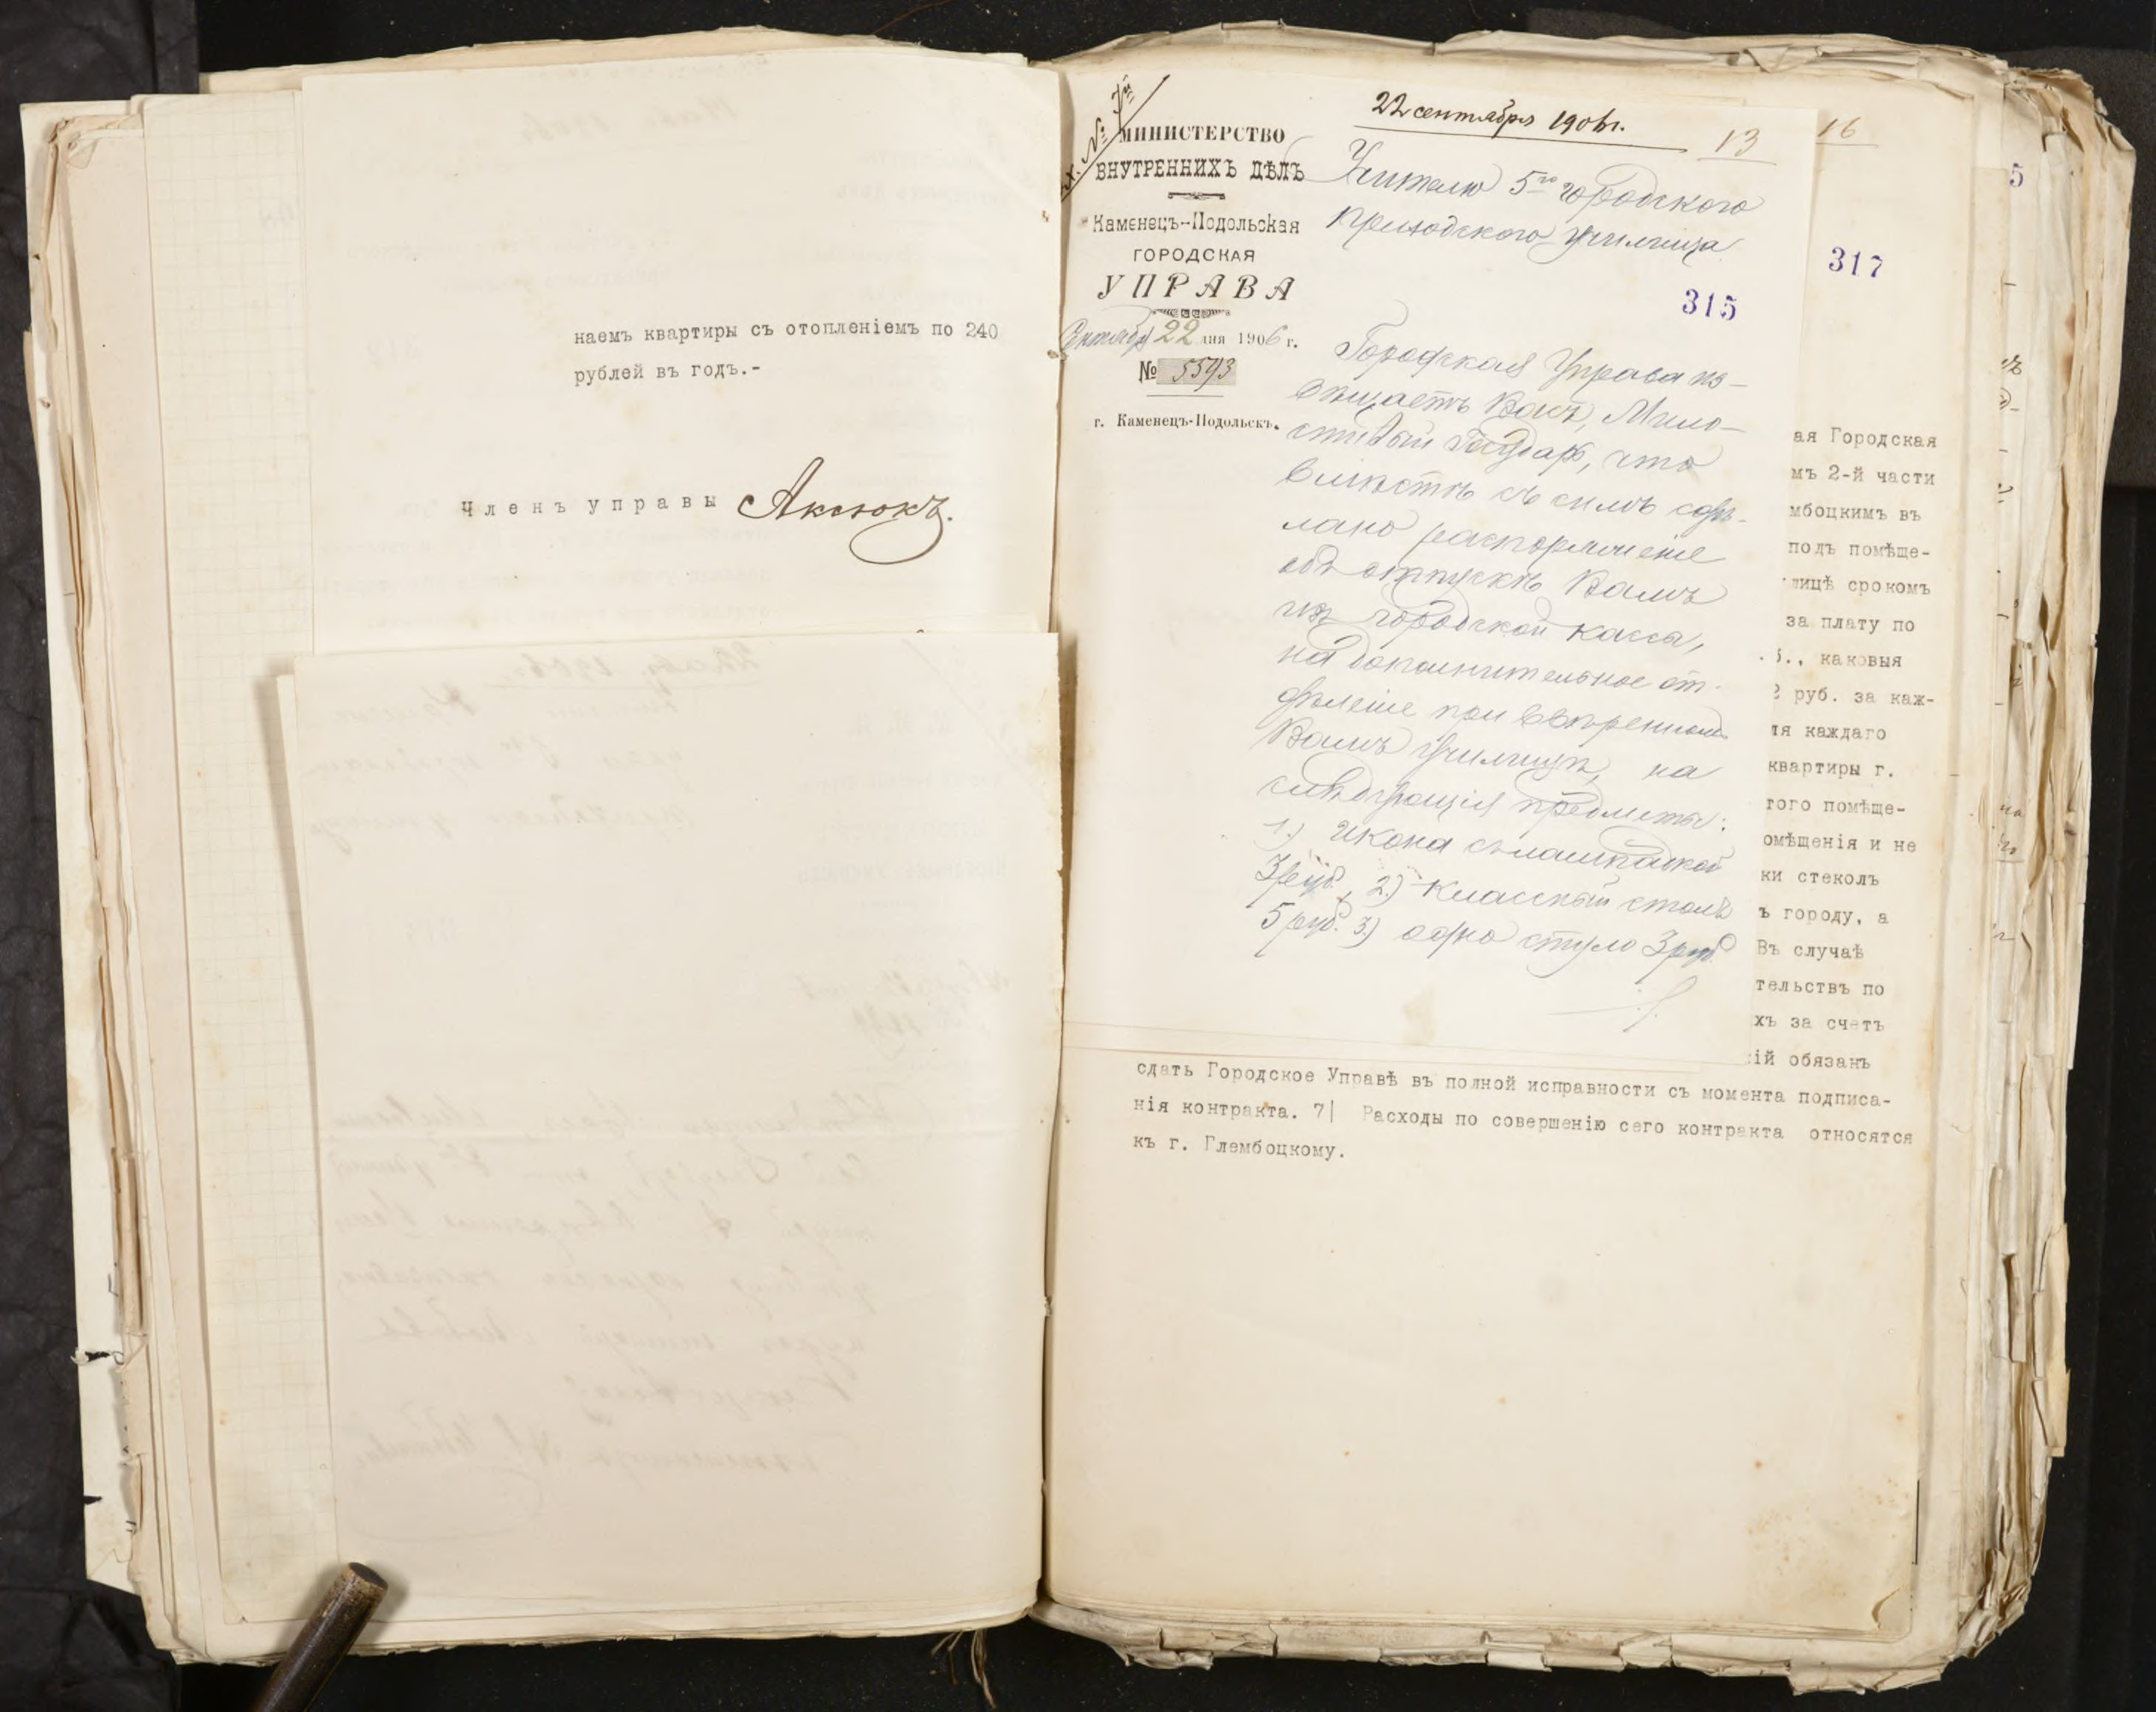 наемъ квартиры съ отопленіемъ по 240
рублей въ годъ.-
Членъ управы Аксюкъ.
МИНИСТЕРСТВО
ВНУТРЕННИХЪ ДѢЛЪ
Каменецъ-Подольская
ГОРОДСКАЯ
УПРАВА
22 дня 1906 г.
№ 5593
г. Каменецъ-Подольскъ.
22 сентября 1906 г.
13
Учителю 5го городского
приходского училища
315
Городская Управа из-
вѣщаетъ Васъ, Мило-
стивый Государь, что
вмѣстѣ съ симъ сдѣ-
лано распоряженіе
объ отпускѣ Вамъ
изъ городской кассы,
на дополнительное от-
дѣленіе при ввѣренномъ
Вамъ училищѣ, на
слѣдующія предметы:
1.) Икона съ лампадкой
3 руб., 2.) Классный столъ
5 руб. 3.) одно стуло 3 руб
16
317
5
ая Городская
мъ 2-й части
мбоцкимъ въ
подъ помѣще-
лицѣ срокомъ
за плату по
б., каковыя
2 руб. за каж-
ія каждаго
квартиры г.
того помѣще-
омѣщенія и не
ки стеколъ
ъ городу, а
Въ случаѣ
тельствъ по
хъ за счетъ
ій обязанъ
сдать Городское Управѣ въ полной исправности съ момента подписа-
нія контракта. 7| Расходы по совершенію сего контракта относятся
къ г. Глембоцкому.